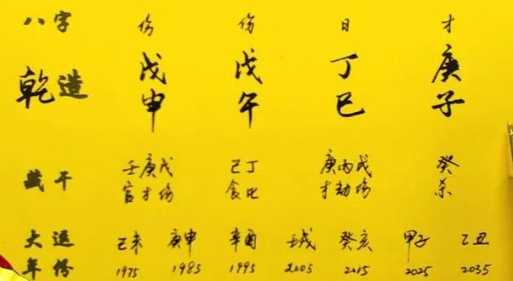 八字 伤 伤 日 才
乾造 戊申 戊午 丁巳 庚子
藏干 壬庚戊 己丁 庚丙戊 癸
官才伤 食比 才劫伤 杀
大运 己未 庚申 辛酉 壬戌 癸亥 甲子 乙丑
年份 1975 1985 1995 2005 2015 2025 2035